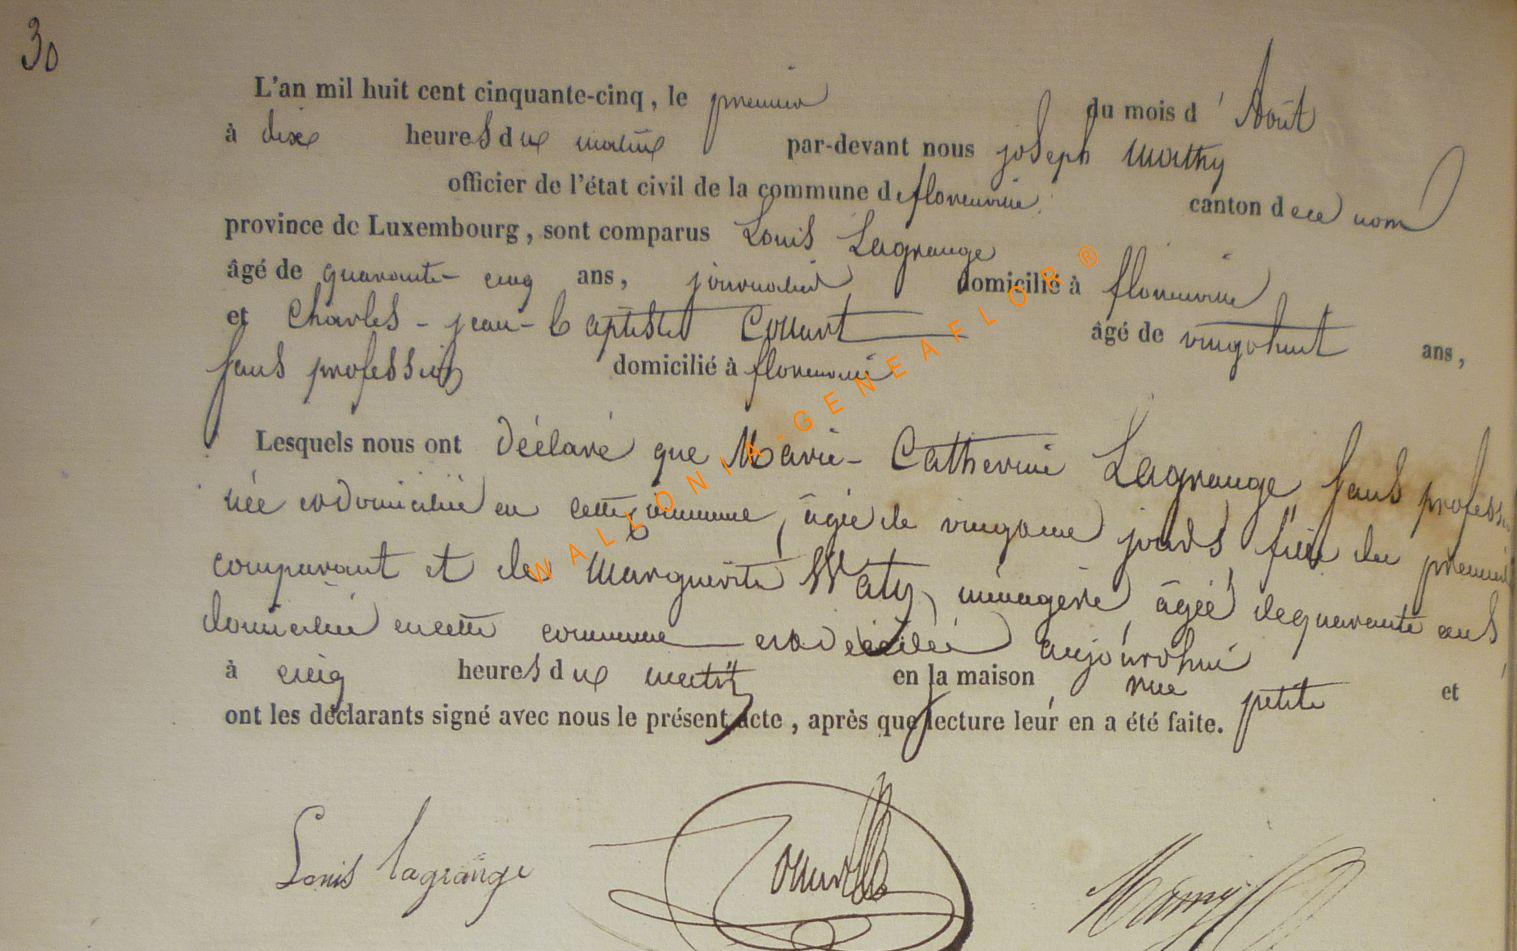 30
L'an mil huit cent cinquante-cinq, le premier du mois d'Août
à dix heures du matin par-devant nous joseph Mathy
officier de l'état civil de la commune de florenville canton de ce nom
province de Luxembourg, sont comparus Louis Lagrange
âgé de quarante-cinq ans, journalier domicilié à florenville
et Charles-jean-baptiste Collart âgé de vingthuit ans,
sans profession domicilié à florenville
Lesquels nous ont déclaré que Marie-Catherine Lagrange sans profession
née et domiciliée en cette commune, âgée de jours, fille du premier
comparant et de Marguerite Waty, ménagère, âgée de quarante ans
domiciliée en cette commune est décédée aujourd'hui
à cinq heures du matin en la maison rue petite et
ont les déclarants signé avec nous le présent acte, après que lecture leur en a été faite.
Louis lagrange
WALLONIA-GENEAFLOR®